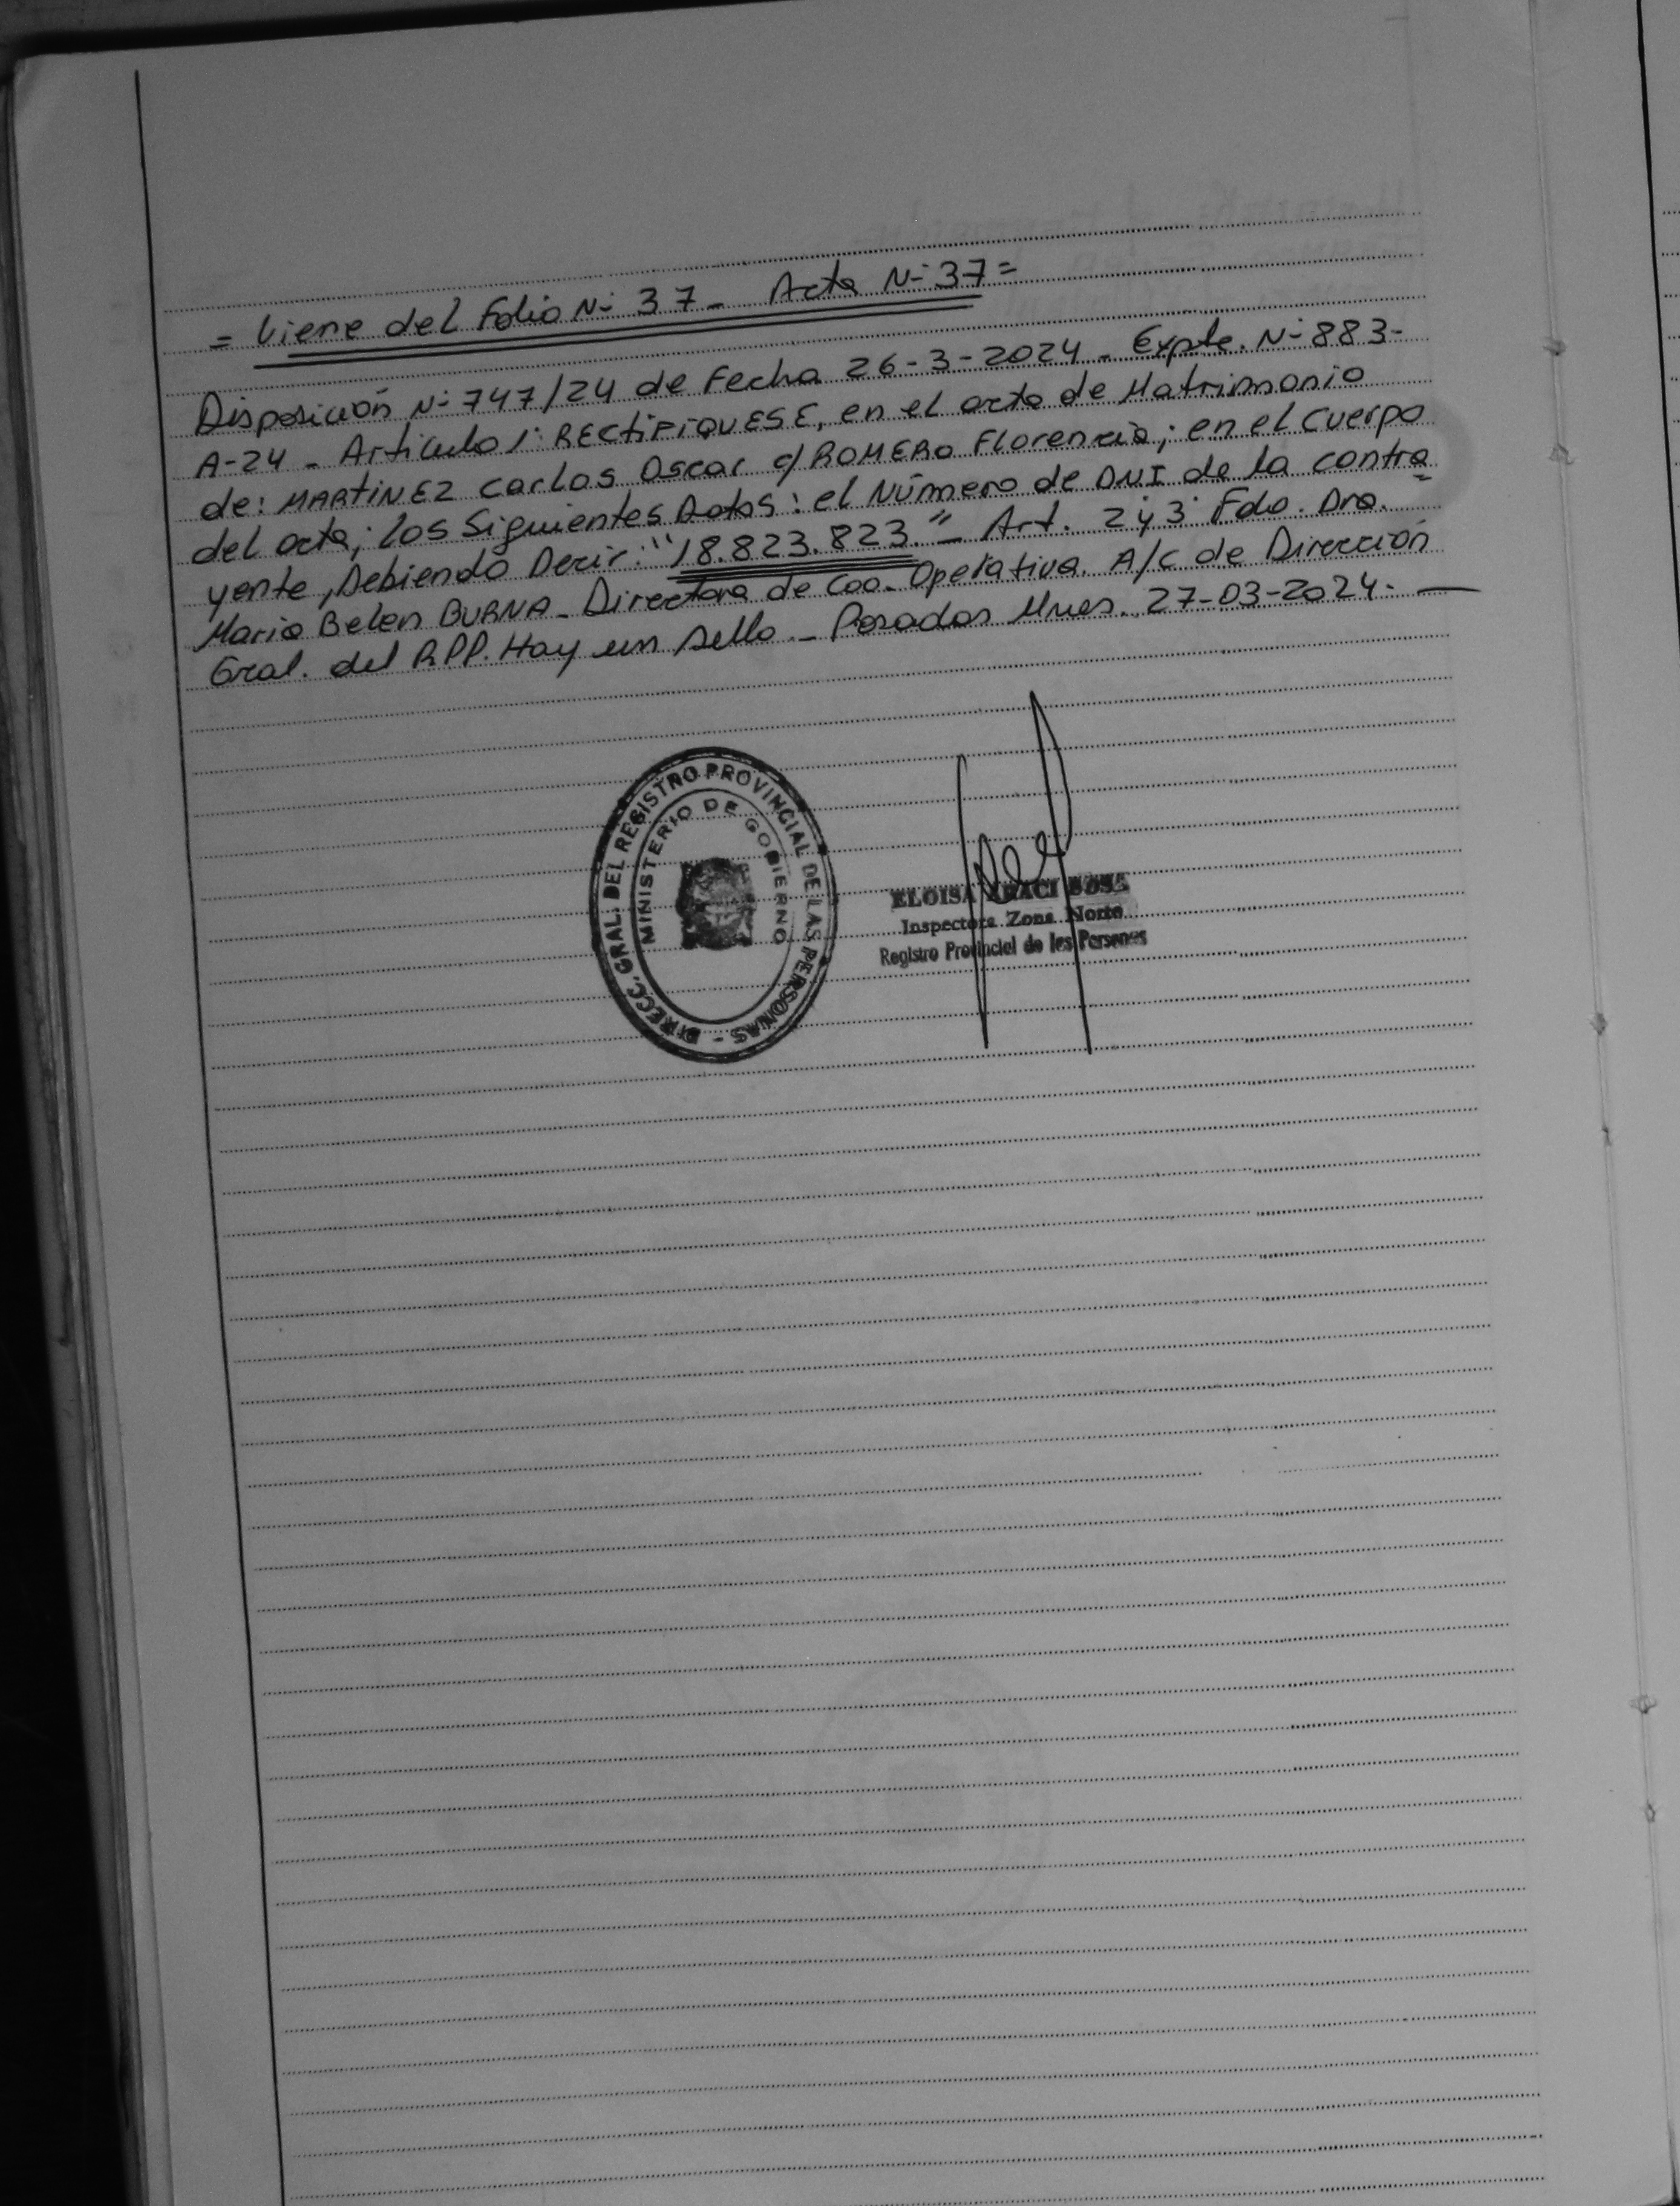 = Viene del Folio Nº 37 - Acta Nº 37 =
Disposición Nº 747/24 de Fecha 26-3-2024 - Expte. Nº 883-
A-24 - Articulo 1º: RECTIFIQUESE, en el acta de Matrimonio
de: MARTINEZ Carlos Oscar c/ ROMERO Florencia; en el Cuerpo
del acta; los Siguientes Datos: el Número de DNI de la contra
yente, Debiendo Decir: "18.823.823." - Art. 2 y 3º Fdo. Dra. =
Maria Belen BURNA - Directora de Coo. Operativa. A/C de Dirección
Gral. del RPP. Hay un sello. - Posadas Mnes. 27-03-2024. —
DIRECC. GRAL. DEL REGISTRO PROVINCIAL DE LAS PERSONAS -
MINISTERIO DE GOBIERNO
ELOISA ARACI SOSA
Inspectora Zona Norte
Registro Provincial de las Personas